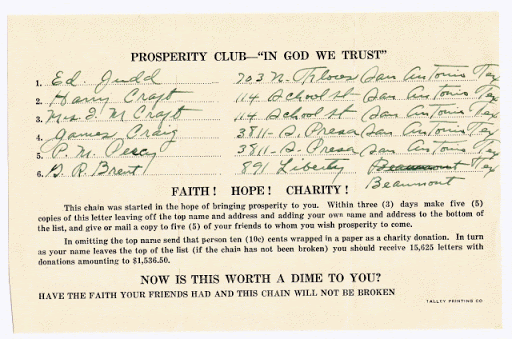 PROSPERITY CLUB—"IN GOD WE TRUST"
1. Ed. Judd 703 N. Flores San Antonio Tex
2. Harry Craft 114 School st San Antonio Tex
3. Mrs. F. M Craft 114 School St San Antonio Tex
4. James Craig 3811- S. Presa San Antonio Tex
5. P. M. Percy 3811- S. Presa San Antonio Tex
6. B. R. Brent 891 Liberty Beaumont Tex
Beaumont
FAITH! HOPE! CHARITY!
This chain was started in the hope of bringing prosperity to you. Within three (3) days make five (5)
copies of this letter leaving off the top name and address and adding your own name and address to the bottom of
the list, and give or mail a copy to five (5) of your friends to whom you wish prosperity to come.
In omitting the top name send that person ten (10c) cents wrapped in a paper as a charity donation. In turn
as your name leaves the top of the list (if the chain has not been broken) you should receive 15,625 letters with
donations amounting to $1,536.50.
NOW IS THIS WORTH A DIME TO YOU?
HAVE THE FAITH YOUR FRIENDS HAD AND THIS CHAIN WILL NOT BE BROKEN
TALLEY PRINTING CO